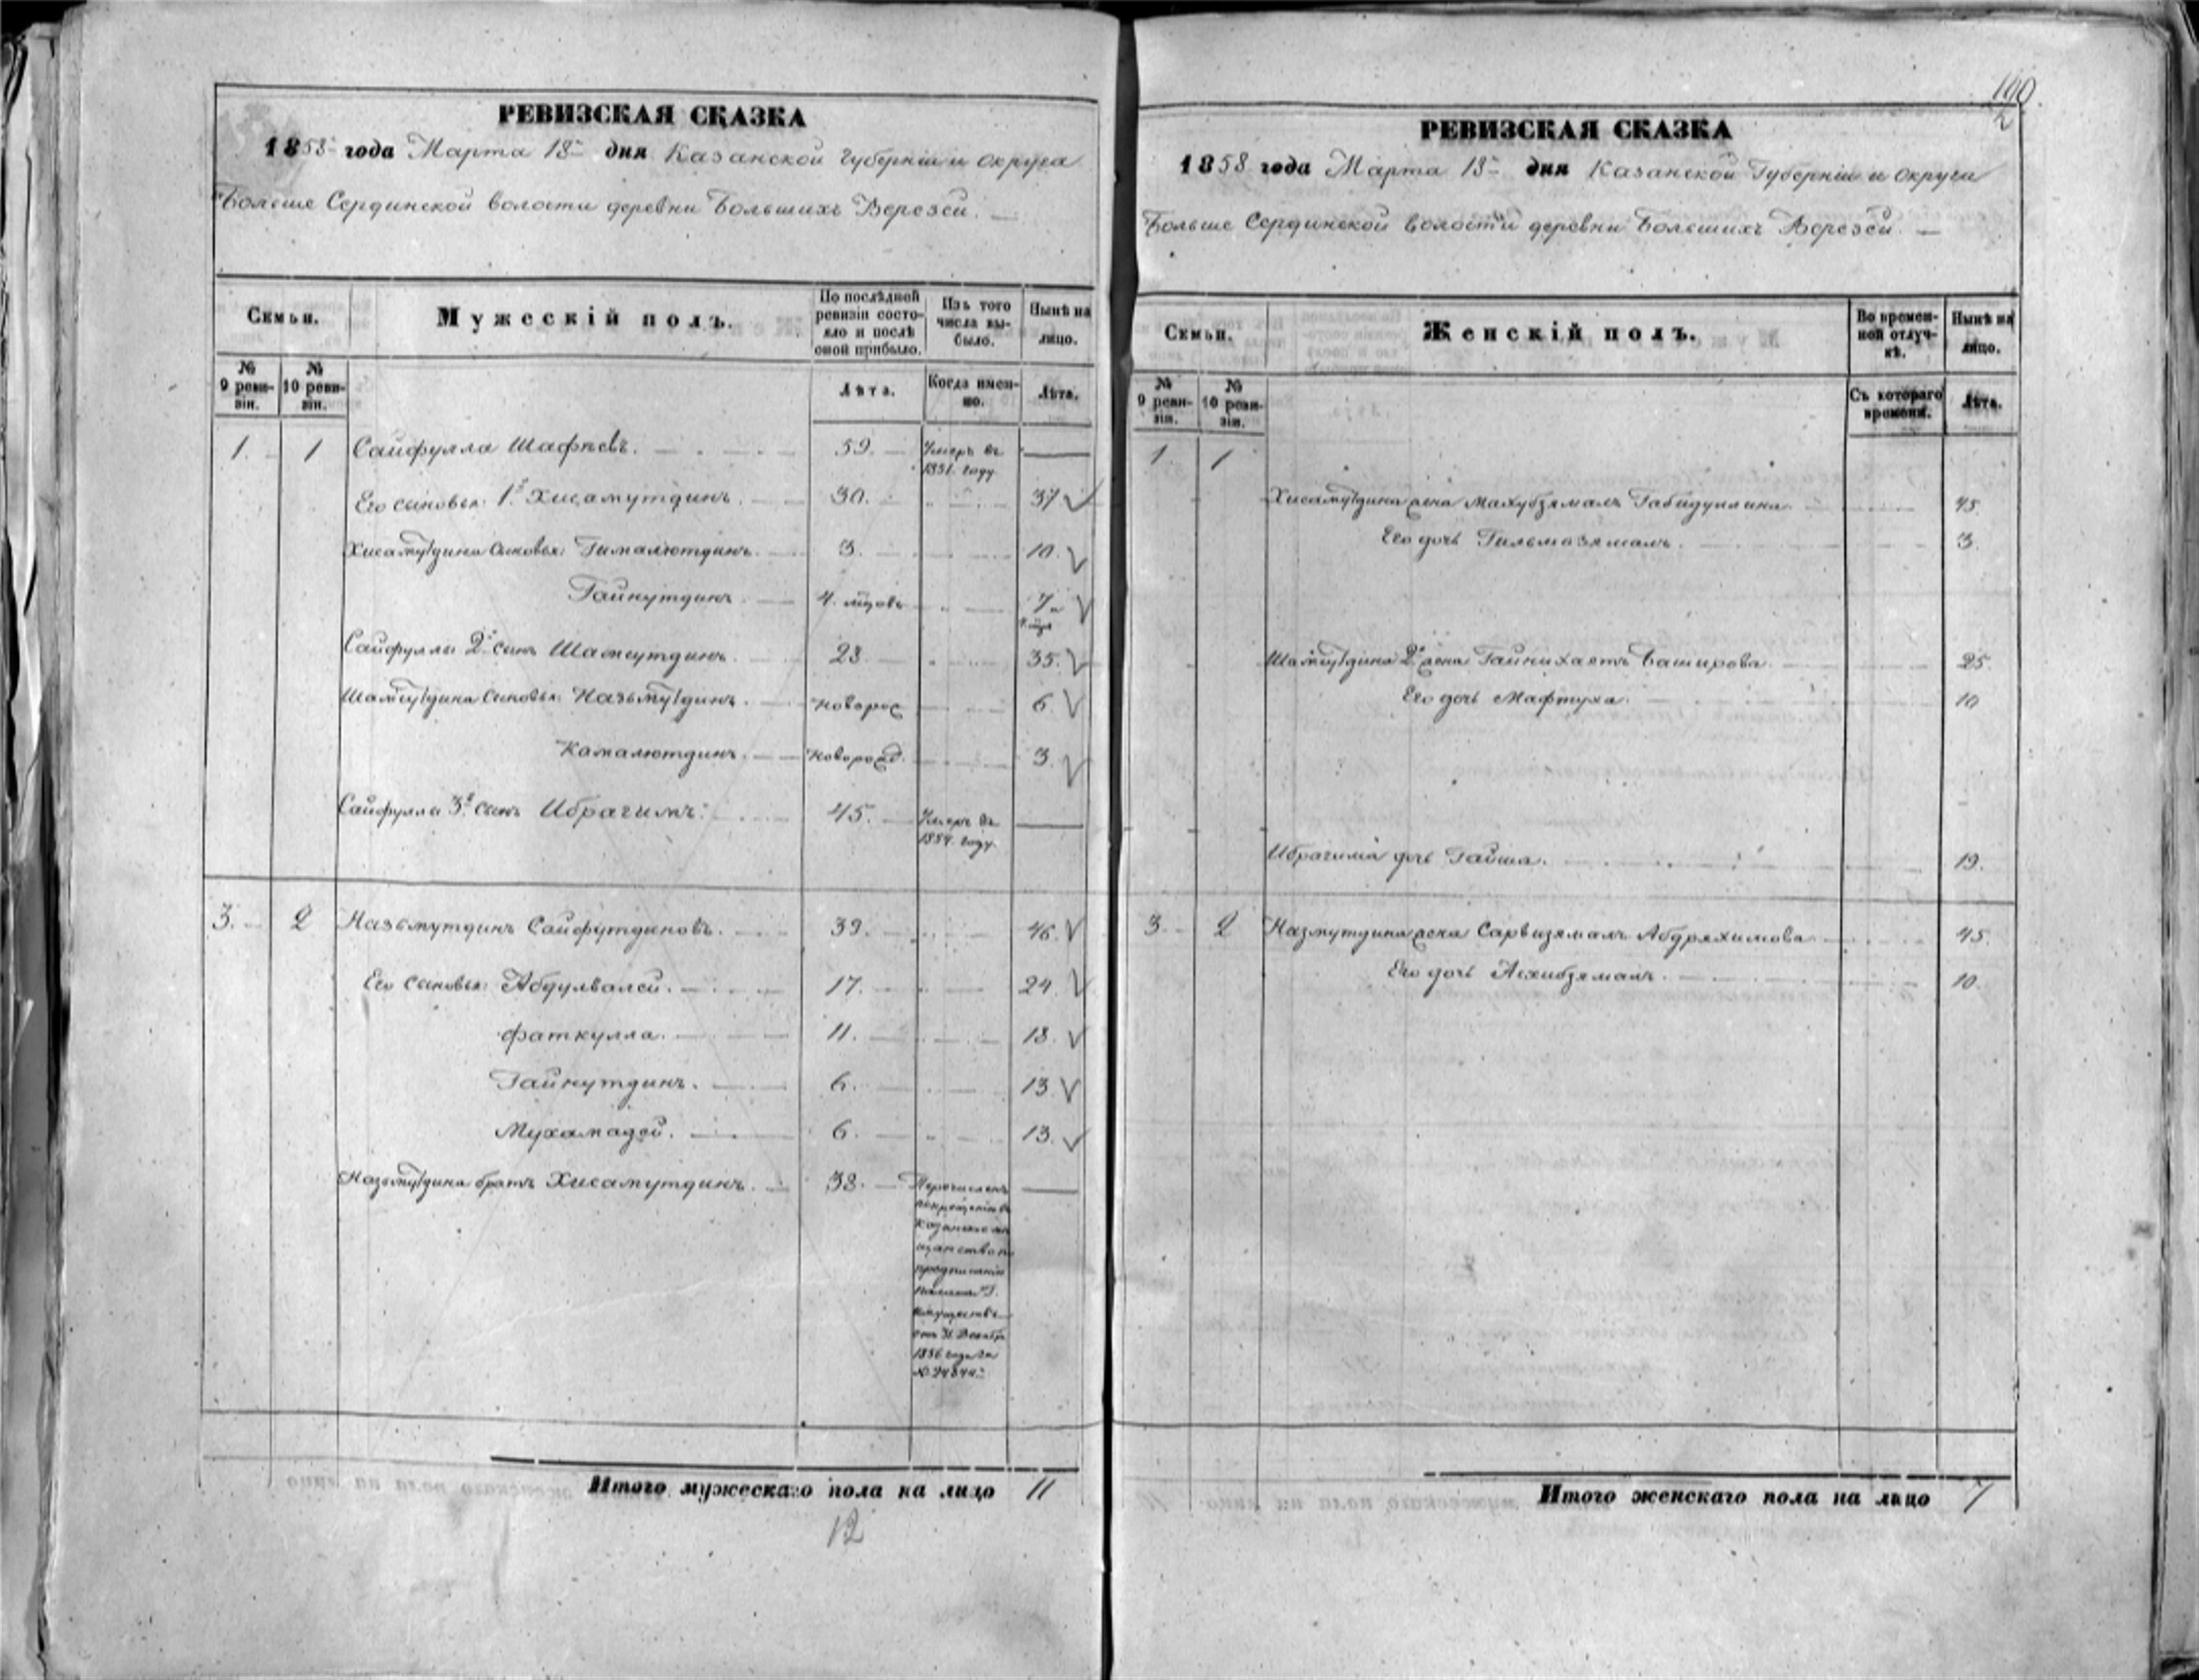 190
2
РЕВИЗСКАЯ СКАЗКА
1858 года Марта 18 дня Казанской Губерніи и округа
Больше Сердинской волости деревни Большихъ Верезей.
Семьи.
Мужескій полъ.
По послѣдней ревизіи состояло и послѣ оной прибыло.
Изъ того числа выбыло.
Нынѣ на лицо.
№ 9 ревизіи.
№ 10 ревизіи.
Лѣта.
Когда именно.
Лѣта.
1. 1 Сайфулла Шафѣевъ. 59. Умеръ въ 1851. году
Его сыновья: 1й Хисамутдинъ. 30. 37
Хисамутдина сыновья: Гималютдинъ. 3. 10.
Гайнутдинъ. 4. мцовъ 7 и 4. мца
Сайфуллы 2й сынъ Шамсутдинъ. 28. 35.
Шамсутдина сыновья: Назьмутдинъ. новорож 6.
Камалютдинъ. новорожд. 3.
Сайфуллы 3й сынъ Ибрагимъ. 45. Умеръ въ 1854. году.
3. 2 Назьмутдинъ Сайфутдиновъ. 39. 46.
Его сыновья: Абдулвалей. 17. 24.
Фаткулла. 11. 18.
Гайнутдинъ. 6. 13
Мухамадей. 6. 13.
Назьмутдина братъ Хисамутдинъ. 38. Перечисленъ
Казанское мѣ
щанство по
предписанію
Палаты Г.
имуществъ
отъ 31 Декабр
1856 года за
№
Итого мужескаго пола на лицо 11
12
РЕВИЗСКАЯ СКАЗКА
1858 года Марта 18 дня Казанской Губерніи и округа
Больше Сердинской волости деревни Большихъ Верезей.
Семьи.
Женскій полъ.
Во временной отлучкѣ.
Нынѣ на лицо.
№ 9 ревизіи.
№ 10 ревизіи.
Съ котораго времени.
Лѣта.
1 1
Хисамутдина жена Махубзямалъ Габидуллина. 45.
Его дочь Гильмозямалъ. 3.
Шамсутдина 2я жена Гайнихаятъ Баширова. 25.
Его дочь Мафтуха. 10
Ибрагима дочь Гайша. 19.
3 2 Назмутдина жена Сарвизямалъ Абдряхимова 45.
Его дочь Асхибзямалъ. 10.
Итого женскаго пола на лицо 7